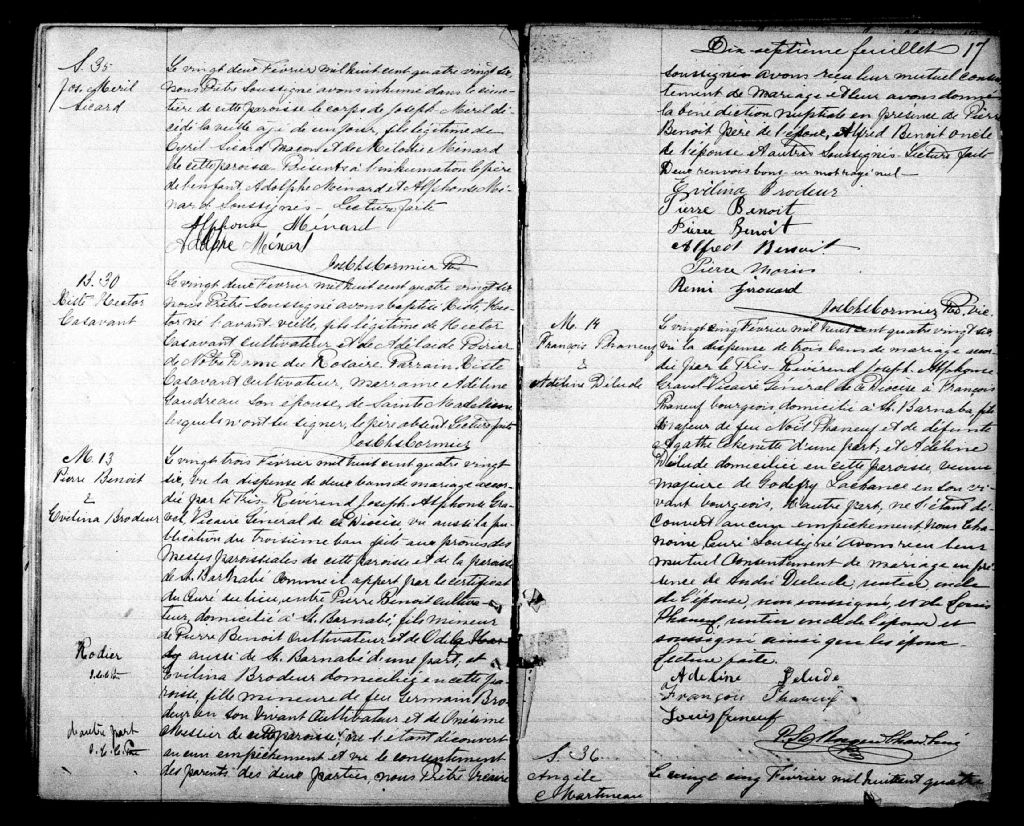 S. 35
Jos. Meril
Sicard
Le vingt deux Février mil huit cent quatre vingt six
nous Prêtre Soussigné avons inhumé dans le cime
tière de cette paroisse le corps de Joseph Meril dé
cédé la veille agé de un jour, fils légitime de
Cyril Sicard Macon et de Mélodie Ménard
de cette paroisse. Présents à l'inhumation le père
de l'enfant Adolphe Ménard et Alphonse Mé
nard Soussignés. Lecture faite
Alphonse Ménard
Adolphe Ménard
Jos Chs Cormier Ptre
B. 30
Xiste Hector
Casavant
Le vingt deux Février mil huit cent quatre vingt six
nous Prêtre Soussigné avons baptisé Xiste Hec
tor né l'avant veille, fils légitime de Hector
Casavant cultivateur et de Adélaide Poirier
de Notre Dame du Rosaire. Parrain Xiste
Casavant cultivateur, marraine Adeline
Gaudreau son épouse, de Sainte Madeleine
lesquels n'ont su signer, le père absent Lecture faite
Jos Chs Cormier
M. 13
Pierre Benoit
&
Evelina Brodeur
Le vingt trois Février mil huit cent quatre vingt
six, vu la dispense de deux bans de mariage accor
dée par le Très Révérend Joseph Alphonse Gra
vel, Vicaire Général de ce Diocèse, vu aussi la pu
blication du troisième ban faite aux prones des
Messes paroissiales de cette paroisse et de la paroisse
de St. Barnabé comme il appert par le certificat
du Curé du lieu, entre Pierre Benoit cultiva
teur, domicilié à St. Barnabé, fils mineur
de Pierre Benoit Cultivateur et de
Rodier
aussi de St. Barnabé d'une part, et
Evelina Brodeur domiciliée en cette pa
roisse, fille mineure de feu Germain Bro
deur en son vivant Cultivateur et de Onésime
Messier de cette paroisse. ne s'étant découvert
d'autre part
aucun empêchement et vu le consentement
des parents des deux parties, nous Prêtre Vicaire
Dix septième feuillet 17
soussignés avons reçu leur mutuel consen
tement de Mariage et leur avons donné
la bénédiction nuptiale en présence de Pierre
Benoit père de l'époux, Alfred Benoit oncle
de l'épouse et autres Soussignés Lecture faite
Deux renvois bons un mot rayé nul
Evelina Brodeur
Pierre Benoit
Pierre Benoit
Alfred Benoit
Pierre Morin
Remi Girouard
Jos Chs Cormier Ptre. Vic.
M. 14
François Phaneuf
&
Adeline Délude
Le vingt cinq Février mil huit cent quatre vingt six,
vu la dispense de trois bans de mariage accor
dée par le Très Révérend Joseph Alphonse
Gravel Vicaire Général de ce Diocèse à François
Phaneuf bourgeois, domicilié à St. Barnabé, fils
majeur de feu Noël Phaneuf et de défunte
Agathe d'une part, et Adeline
Délude domiciliée en cette paroisse, veuve
majeure de Godefroy Lachance en son vi
vant bourgeois, d'autre part, ne s'étant dé
couvert aucun empêchement nous Cha
noine Curé Soussigné avons reçu leur
mutuel Consentement de mariage en pré
sence de André Délude, rentier oncle
de l'épouse, non soussigné, et de Louis
Phaneuf, rentier oncle de l'époux et
soussigné ainsi que les époux
Lecture faite.
Adeline Delude
François Phaneuf
Louis feneuf
S. 36
Angèle
Martineau
Le vingt cinq Février mil huit cent quatre